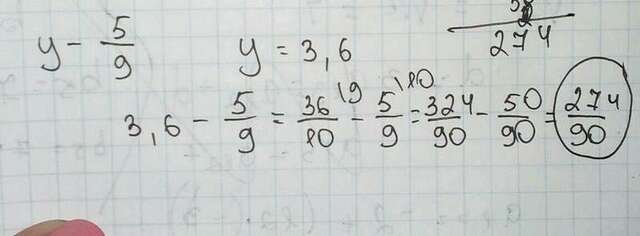 y - 5/9 y = 3,6
3,6 - 5/9 = 36/10 \9 - 5/9 \10 = 324/90 - 50/90 = 274/90
274